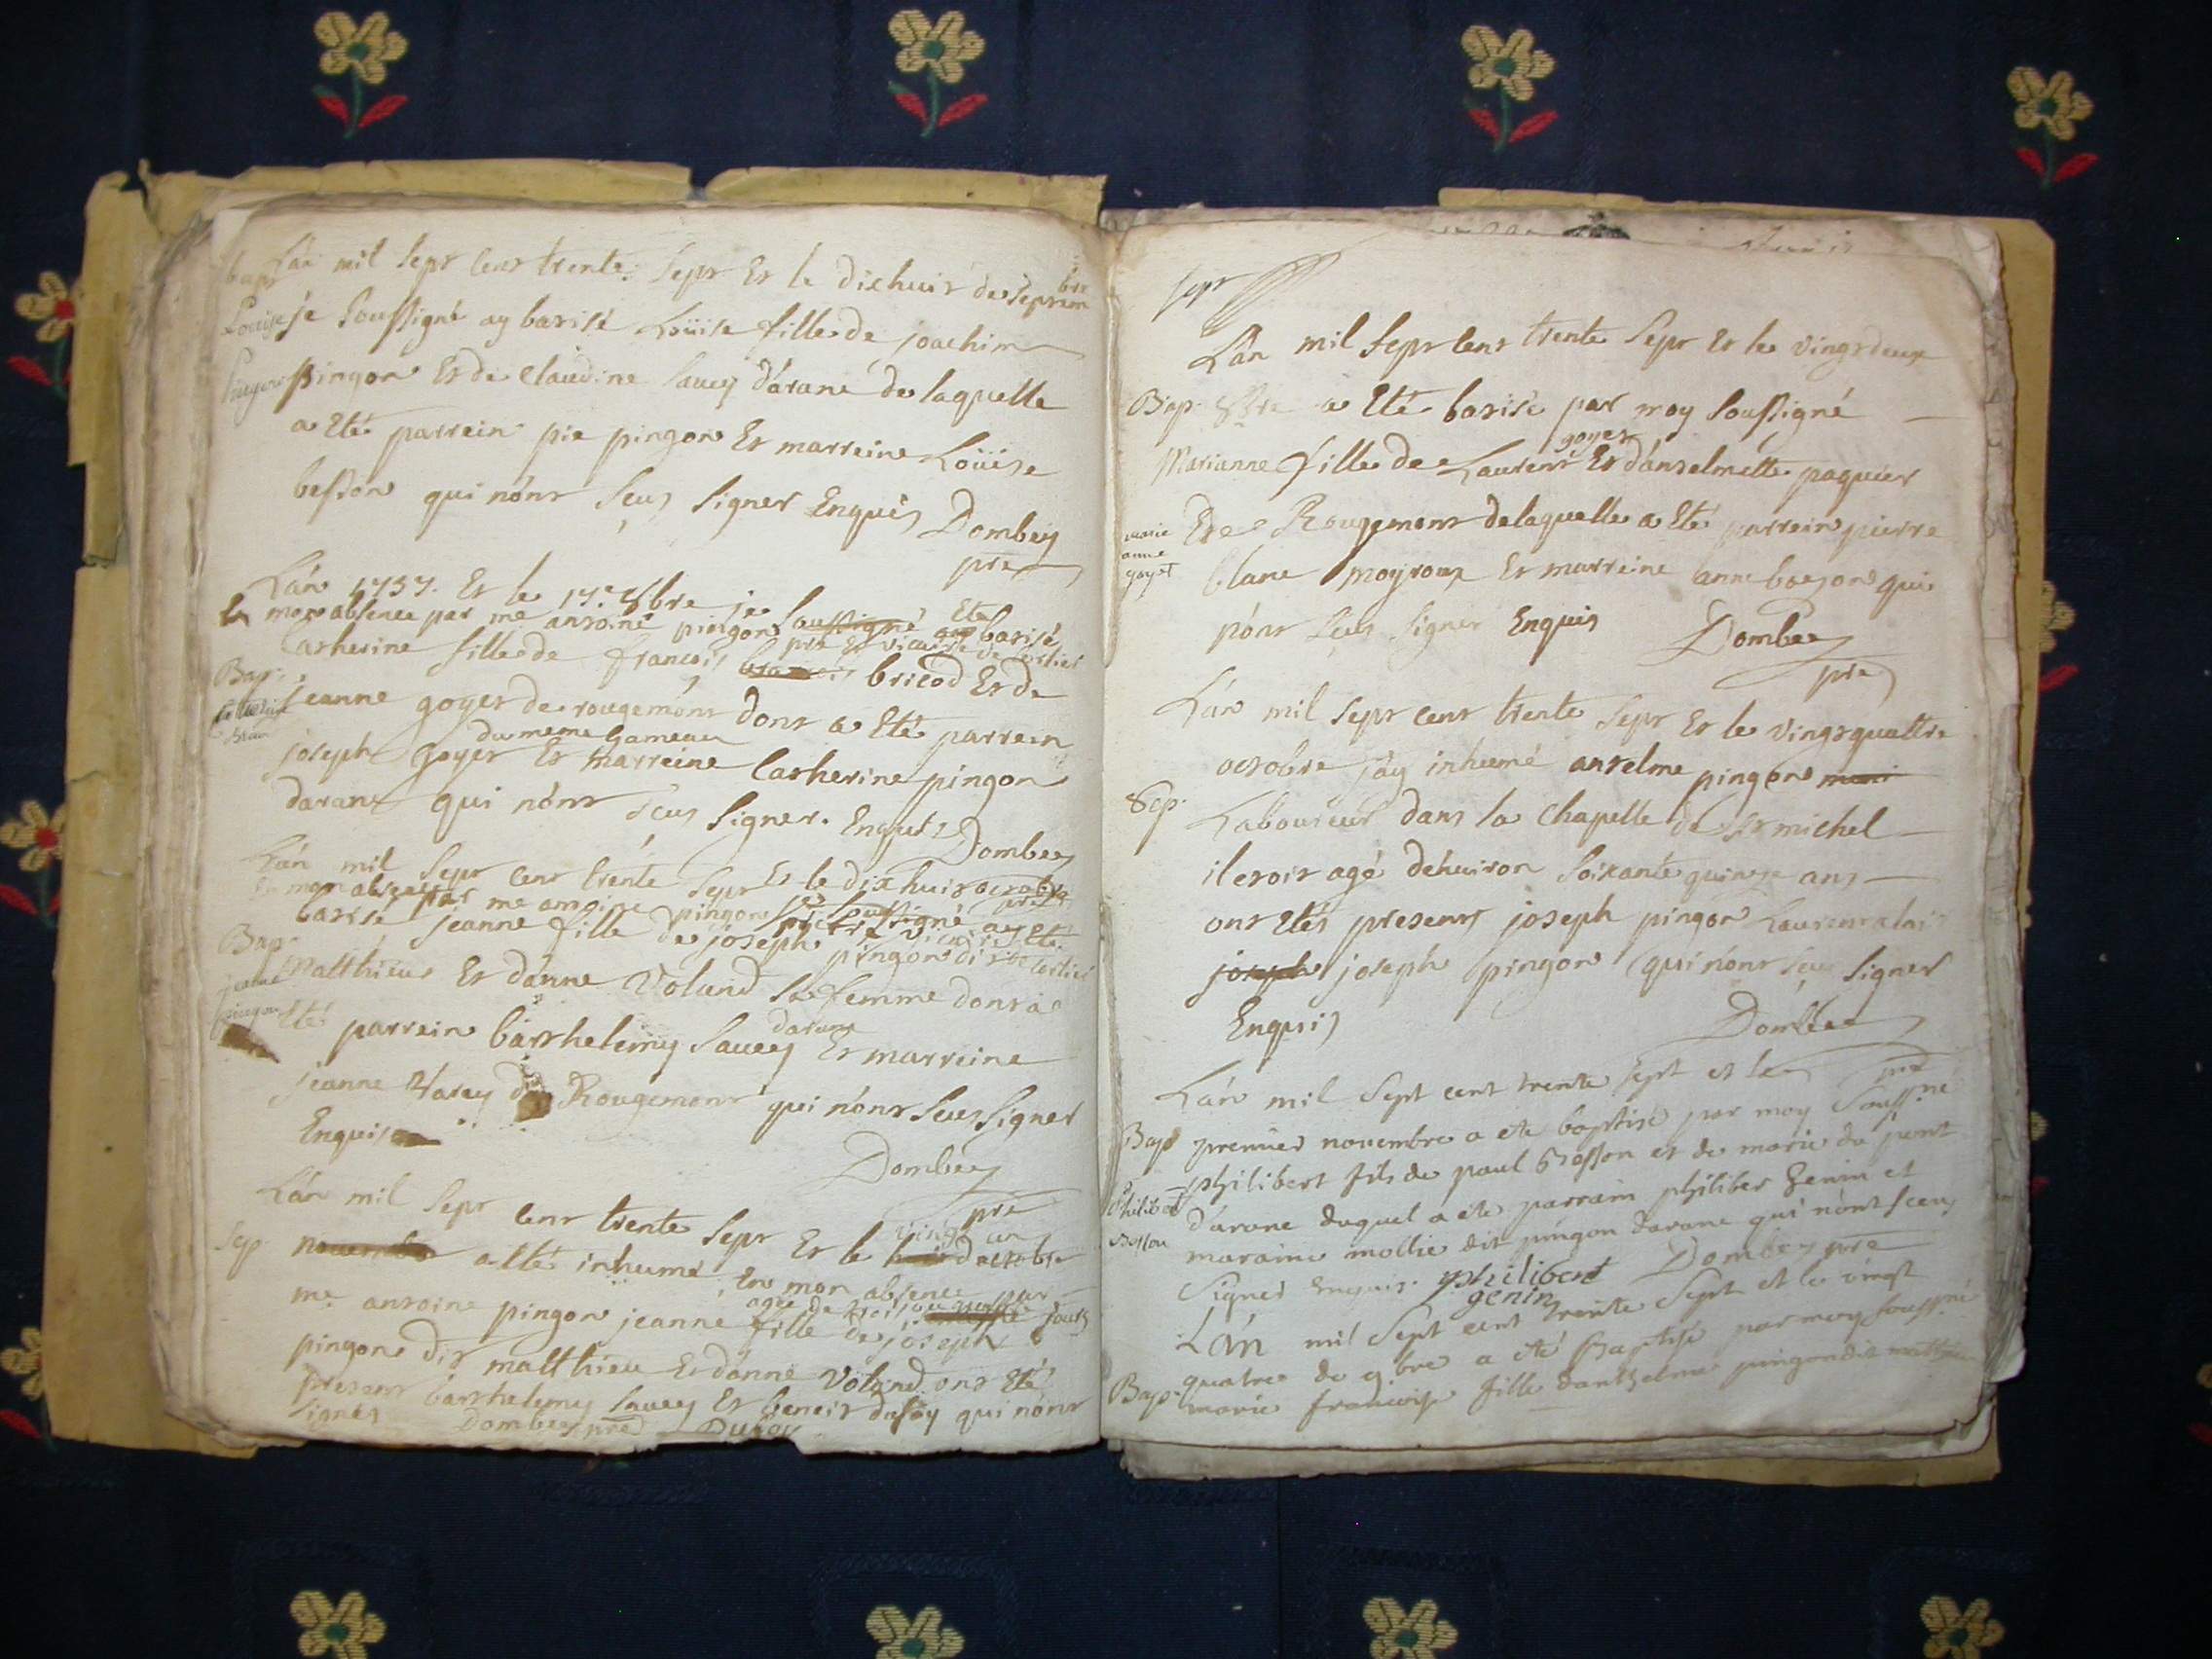 bapt
Lán mil sept cent trente sept Et le dixhuit de septem
bre
Louise je soussigné ay batisé Loüise fille de joachim
Pingon pingon Et de claudine sauey dárane de laquelle
a Eté parrein pie pingon Et marreine Loüise
besson qui nónt sçus signer Enquis Dombey
pre
Lán 1737. Et le 17e 8bre je soussigné Eté
En mon absence par me antoine pingon ay batisé
pre Et vicaire de
Catherine fille de francois bricod Et de
Bap.
jeanne goyet de rougemónt dont a Eté parrein
du meme hameau
joseph goyet Et marreine Catherine pingon
darane qui nónt sçus signer. Enquis Dombey
Lán mil sept cent trénte sept Et le dixhuit octobre
En mon absence par me antoine pingon je soussigné ay Eté
prêtre vicaire de
batisé jeanne fille de joseph pingon dit
Bap.
jeanne matthieu Et dánne Volund sa femme dont a
pingon Eté parrein barthelemy sauey Et marreine
darane
jeanne Varey de Rougemont qui nónt sçus signer
Enquis
Dombey
pre
Lán mil sept cent trente sept Et le d'octobre
vingt un
Sep. novembre a Eté inhumé En mon absence par
me antoine pingon jeanne fille de joseph
agée de trois jours
pingon dit matthieu Et dánne Volund ont Eté
presens barthelemy sauey Et benoit dufoy qui nónt
signés Dombey pre Dufoy
sept
Lán mil sept cent trente sept Et le vingtdeux
Bap. 8bre a Eté batisé par moy soussigné
goyet
Marianne fille de Laurent Et dánselmette paquier
marie
anne
goyet
de Rougemont delaquelle a Eté parrein pierre
blanc moyroux Et marreine anne qui
nónt sçus signer Enquis Dombey
pre
Lán mil sept cent trente sept Et le vingtquattre
octobre jáy inhumé anselme pingon
Sep. Laboureur dans la Chapelle de St michel
il etoit agé dénviron soixante quinze ans
ont Etés presents joseph pingon Laurent
joseph joseph pingon qui nónt sçus signer
Enquis Dombey
pre
Lán mil sept cent trente sept et le
Bap premier novembre a ete baptisé par moy soussné
philibert fils de paul Bosson et de marie du pont
Philibert
Bosson
dárane duquel a ete parrain philiber genin et
maraine mollie dit pingon darane qui nónt sceu
signer enquis. philibert genin Dombey pre
Lán mil sept cent trente sept et le vingt
quatre de 9.bre a eté Baptisé par moy soussné
Bap. marie francoise fille danthelme pingon dit matthieu